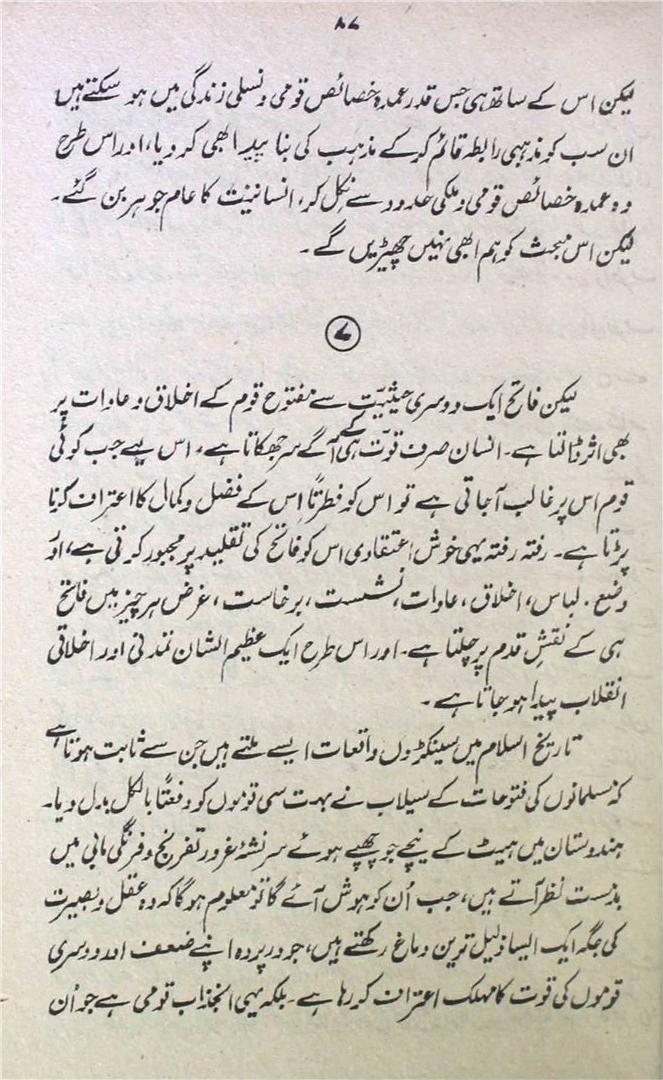 ۸۷
لیکن اس کے ساتھ ہی جس قدر عمدہ خصائص قومی و نسلی زندگی میں ہو سکتے ہیں
ان سب کو مذہبی رابطہ قائم کر کے مذہب کی بنا پر پیدا بھی کر دیا، اور اس طرح
وہ عمدہ خصائص قومی و ملکی حدود سے نکل کر، انسانیت کا عام جوہر بن گئے۔
لیکن اس مبحث کو ہم ابھی نہیں چھیڑیں گے۔
۷
لیکن فاتح ایک دوسری حیثیت سے مفتوح قوم کے اخلاق و عادات پر
بھی اثر ڈالتا ہے۔ انسان صرف قوّت ہی کے آگے سر جھکاتا ہے، اس لیے جب کوئی
قوم اس پر غالب آجاتی ہے تو اس کو فطرتاً اِس کے فضل و کمال کا اعتراف کرنا
پڑتا ہے۔ رفتہ رفتہ یہی خوش اعتقادی اس کو فاتح کی تقلید پر مجبور کرتی ہے، اور
وضع۔ لباس، اخلاق، عادات، نشست، برخاست، غرض ہر چیز میں فاتح
ہی کے نقشِ قدم پر چلتا ہے۔ اور اس طرح ایک عظیم الشان تمدنی اور اخلاقی
انقلاب پیدا ہو جاتا ہے۔
تاریخ اسلام میں سینکڑوں واقعات ایسے ملتے ہیں جن سے ثابت ہوتا ہے
کہ مسلمانوں کی فتوحات کے سیلاب نے بہت سی قوموں کو دفعتاً بالکل بدل دیا۔
ہندوستان میں ہیٹ کے نیچے جو چھپے ہوئے سر نشۂ غرور تفرنج و فرنگی مابی میں
بدمست نظر آتے ہیں، جب اُن کو ہوش آئے گا تو معلوم ہوگا کہ وہ عقل و بصیرت
کی جگہ ایک ایسا ذلیل ترین دماغ رکھتے ہیں، جو در پردہ اپنے ضعف اور دوسری
قوموں کی قوت کا مہلک اعتراف کر رہا ہے۔ بلکہ یہی انجذاب قومی ہے جو اُن